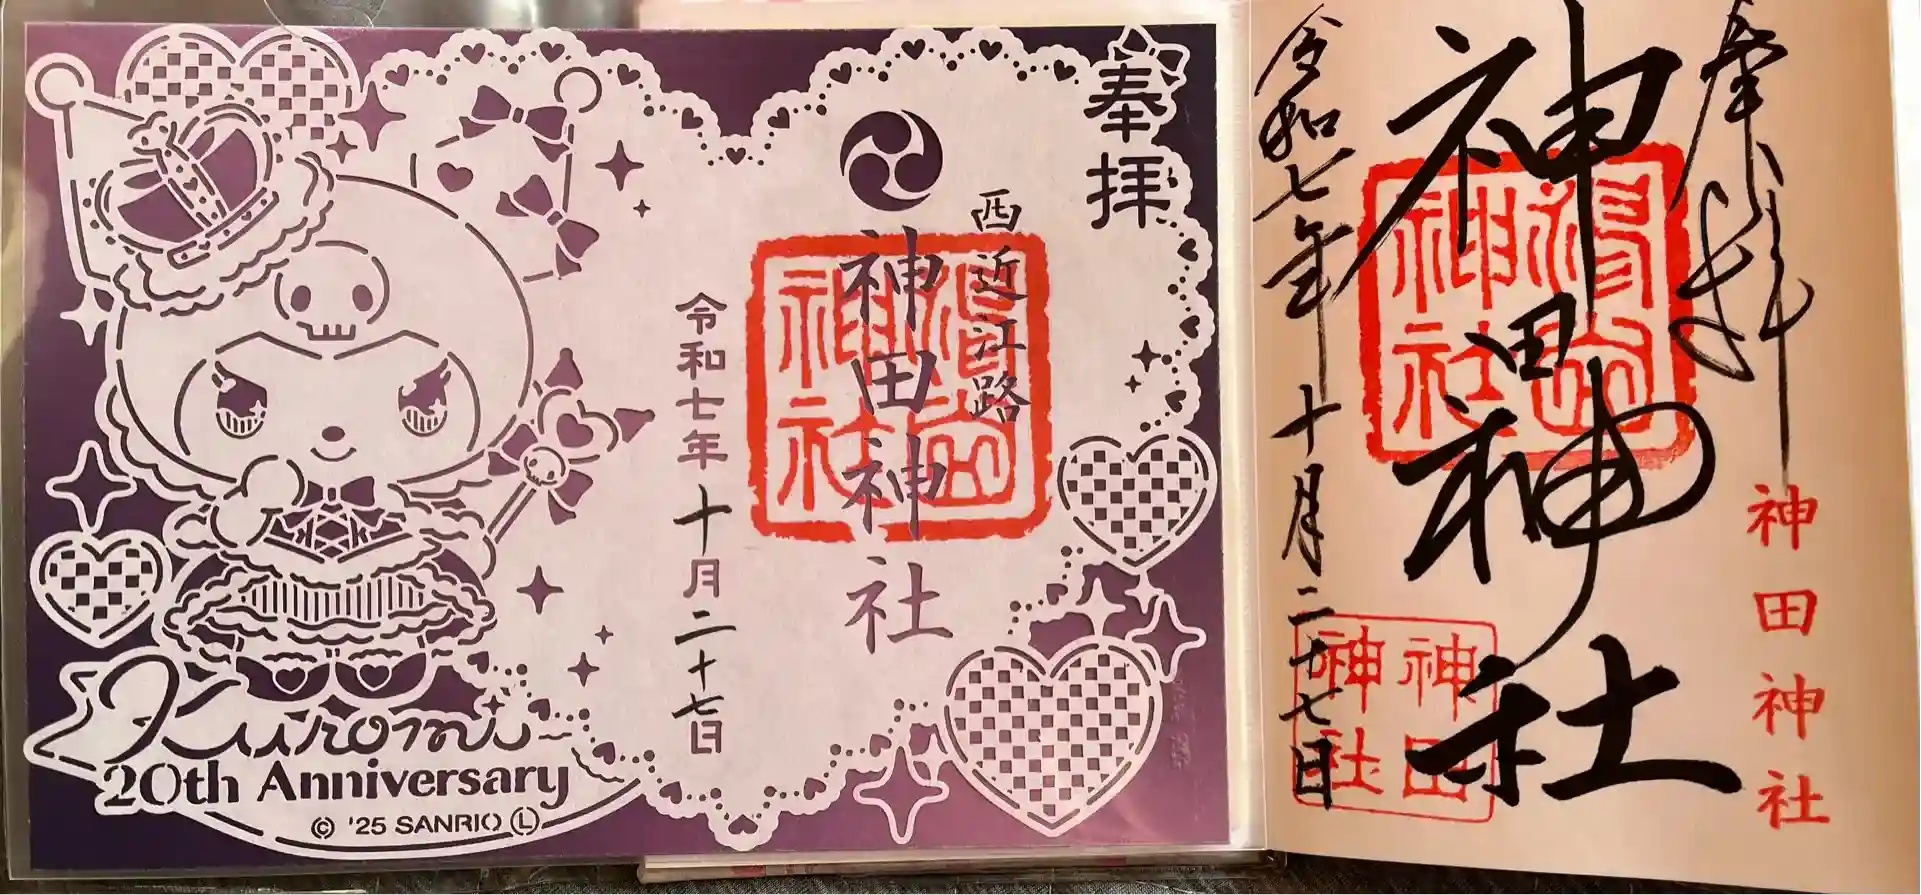 奉拝
西近江路
神田神社
令和七年十月二十七日
Kuromi
20th Anniversary
© '25 SANRIO Ⓛ
奉拝
神田神社
神田神社
神田神社
令和七年十月二十七日